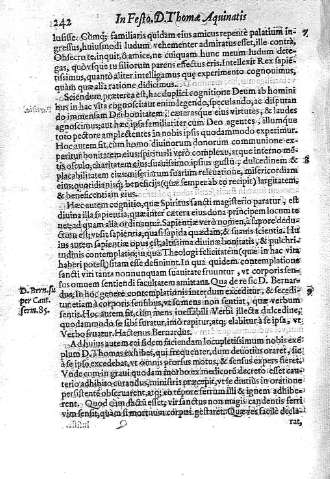 242 In Festo. D. Thomæ Aquinatis
lusisse. Cumq; familiaris quidam eius amicus repentè palatium in-
gressus, huiusmodi ludum vehementer admiratus esset, ille contrà,
Obsecro te, inquit, ô amice, ne cuiquam hunc meum ludum dete-
gas, quousque tu filiorum parens effectus eris. Intellexit Rex sapiẽ-
tissimus, quantò aliter intelligamus quę experimento cognouimus,
quàm quæ alia ratione didicimus.
Sciendum præterea est, hac duplici cognitione Deum ab homini
bus in hac vita cognosci: aut enim legendo, speculando, ac disputan
do immensam Dei bonitatem, cæterasque eius virtutes, & laudes
agnoscimus, aut hæc ipsa familiariter cum Deo agentes, illumque
toto pectore amplectentes in nobis ipsis quodammodo experimur.
Hoc autem fit, cùm homo diuinorum donorum communione ex-
peritur bonitatem eius spirituali verò complexu, atque interno mẽ-
tis osculo, charitatem eius suauissimo ipsius gustu; dulcedinem &
placabilitatem eius
eius, quotidianisq; beneficijs (quæ semper ab eo recipit) largitatem,
& beneficentiam eius.
Hæc autem cognitio, quæ Spiritus sancti magisterio paratur, est
diuina illa sapientia, quæ inter cætera eius dona principem locum te
net, ad quam alia ordinantur. Sapientiæ verò nomen, à sapore dedu
ctum est, vt sit sapientia, quasi sapida quædam, & suauis scientia. Hu
ius autem sapientiæ opus est altissima diuinæ bonitatis, & pulchri-
tudinis contemplatio; in qua Theologi felicitatem (quæ in hac vita
haberi potest) sitam esse definiunt. In qua quidem contemplatione
sancti viri tanta nonnunquam suauitate fruuntur, vt corporis sen-
sus omnem sentiendi facultatem amittant. Qua de re sic D. Bernar-
D. Bern. su
per Cant.
serm. 85.
dus, In hoc genere contemplationis interdum exceditur, & secedi-
tur etiam à corporis sensibus, vt sese mens non sentiat, quæ verbum
sentit. Hoc autem fit, cùm mens ineffabili Verbi illecta dulcedine,
quodammodo se sibi furatur, imò rapitur, atq; elabitur à se ipsa, vt
Verbo fruatur. Hactenus Bernardus.
Ad huius autem rei fidem faciendam locupletissimum nobis exẽ-
plum D. Thomas exhibet, qui frequenter, dum deuotius oraret, sic
à se ipso excedebat, vt omnis penitus motus, & sensus expers fieret.
Vnde cum in graui quodam morbo ex medicorũ decreto esset cau-
terio adhibito curandus, ministris præcepit, vt se
persistentẽ obseruarent, atq; eo tẽpore ferrum illi & ignem adhibe-
rent. Quod cùm factũ esset, vir sanctus non magis candentis ferri
vim sensit, quàm si mortuum corpus gestaret. Quæ res facilè decla-
rat,